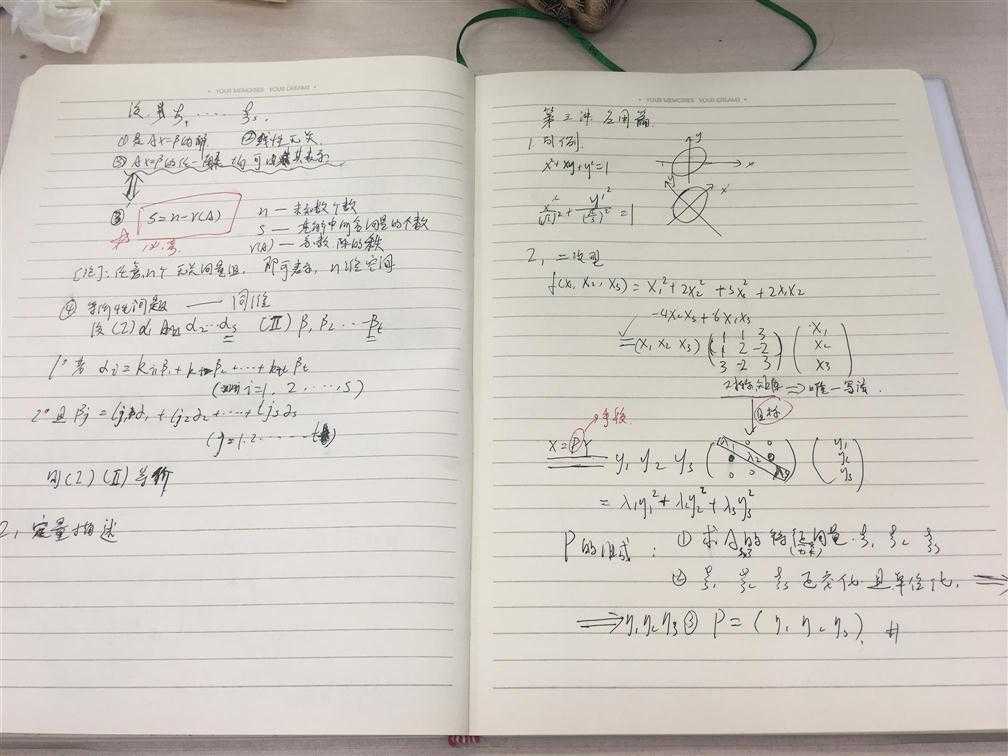 YOUR MEMORIES YOUR DREAMS
设 ξ₁ ‥‥ ξₛ
①是Ax=β的解 ②线性无关
③ Ax=β的任一解 均可由其表示
③ S=n-r(A)
n — 未知数个数
S — 基解中所含向量的个数
r(A) — 系数阵的秩
[注]: 任意n个无关向量组, 即可表示, n维空间
④ 等价性问题 —— 同维
设(I) α₁ α₂…αₛ (II) β₁ β₂ … βt
1° 若 αi = ki₁β₁+ki₂β₂+…+kitβt
(i=1, 2, …, s)
2° 且 βj = lj₁α₁+lj₂α₂+…+ljsαs
(j=1.2.……t)
则(I)(II)等价
2, 定量描述
YOUR MEMORIES YOUR DREAMS
第三讲 应用篇
1. 引例.
x²+xy+y²=1
y
x
y'
x'
2, 二次型
f(x₁, x₂, x₃) = x₁²+2x₂²+3x₃²+2x₁x₂
-4x₂x₃+6x₁x₃
= (x₁ x₂ x₃) (1 1 3 / 1 2 -2 / 3 -2 3) (x₁ / x₂ / x₃)
对称矩阵 ⟹ 唯一写法.
目标
手段
X=PY y₁ y₂ y₃ (λ₁ 0 0 / 0 λ₂ 0 / 0 0 λ₃) (y₁ / y₂ / y₃)
= λ₁y₁²+λ₂y₂²+λ₃y₃²
P的组成 : ① 求A的特征向量. ξ₁ ξ₂ ξ₃
② ξ₁ ξ₂ ξ₃ 正交化且单位化. ⟹
⟹ η₁ η₂ η₃ ③ P = (η₁ η₂ η₃). #